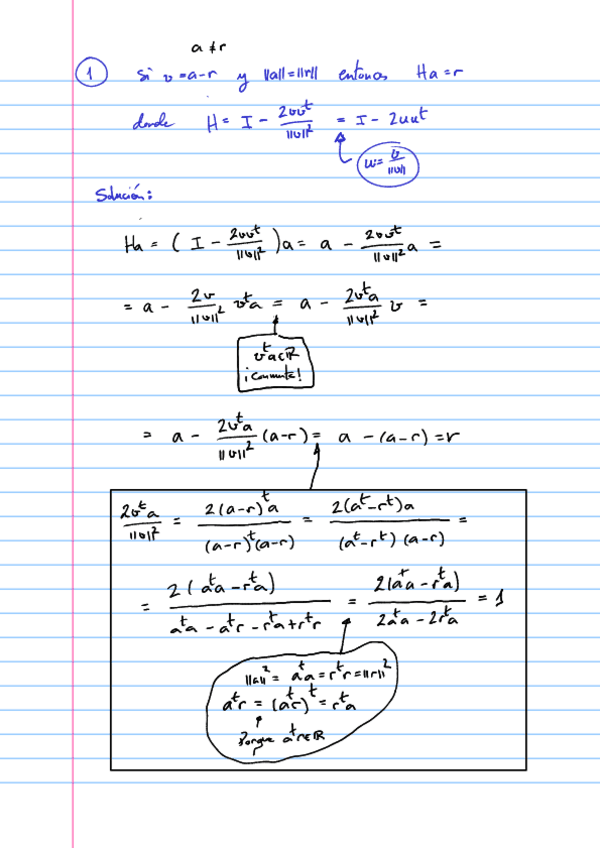 a ≠ r
① Si v = a-r y ||a|| = ||r|| entonces Ha = r
donde H = I - 2vvᵗ/||v||² = I - 2uuᵗ
u = v/||v||
Solución:
Ha = ( I - 2vvᵗ/||v||² )a = a - 2vvᵗ/||v||² a =
= a - 2v/||v||² vᵗa = a - 2vᵗa/||v||² v =
vᵗa∈ℝ
¡Conmuta!
= a - 2vᵗa/||v||² (a-r) = a - (a-r) = r
2vᵗa/||v||² = 2(a-r)ᵗa/(a-r)ᵗ(a-r) = 2(aᵗ-rᵗ)a/(aᵗ-rᵗ)(a-r) =
= 2(aᵗa - rᵗa)/aᵗa - aᵗr - rᵗa + rᵗr = 2(aᵗa - rᵗa)/2aᵗa - 2rᵗa = 1
||a||² = aᵗa = rᵗr = ||r||²
aᵗr = (aᵗr)ᵗ = rᵗa
Porque aᵗr∈ℝ